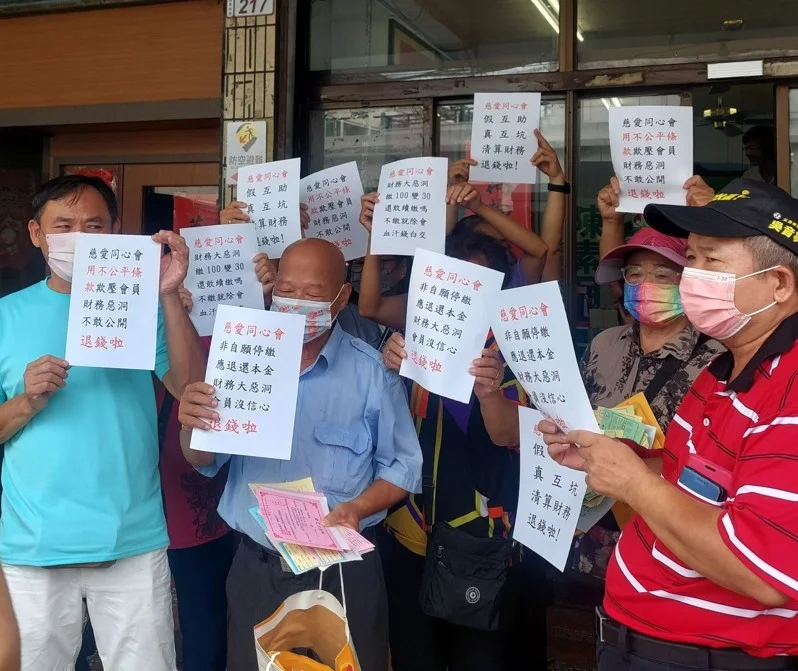 217
防空避難
慈愛同心會
用不公平條
款欺壓會員
財務惡洞
不敢公開
退錢啦
慈愛同心會
財務大惡洞
繳100變30
還敢續繳嗎
不繳就除會
慈愛同心會
假互助
真互坑
清算財務
退錢啦!
慈愛同心會
財務大惡洞
繳100變30
還敢續繳嗎
不繳就除會
血汗錢白交
慈愛同心會
假互助
真互坑
清算財務
退錢啦!
慈愛同心會
用不公平條
款欺壓會員
財務惡洞
不敢公開
退錢啦
慈愛同心會
非自願停繳
應退還本金
財務大惡洞
會員沒信心
退錢啦
慈愛同心會
非自願停繳
應退還本金
財務大惡洞
會員沒信心
退錢啦
慈愛同心會
非自願停繳
應退還本金
財務大惡洞
會員沒信心
假
真互坑
清算財務
退錢啦!